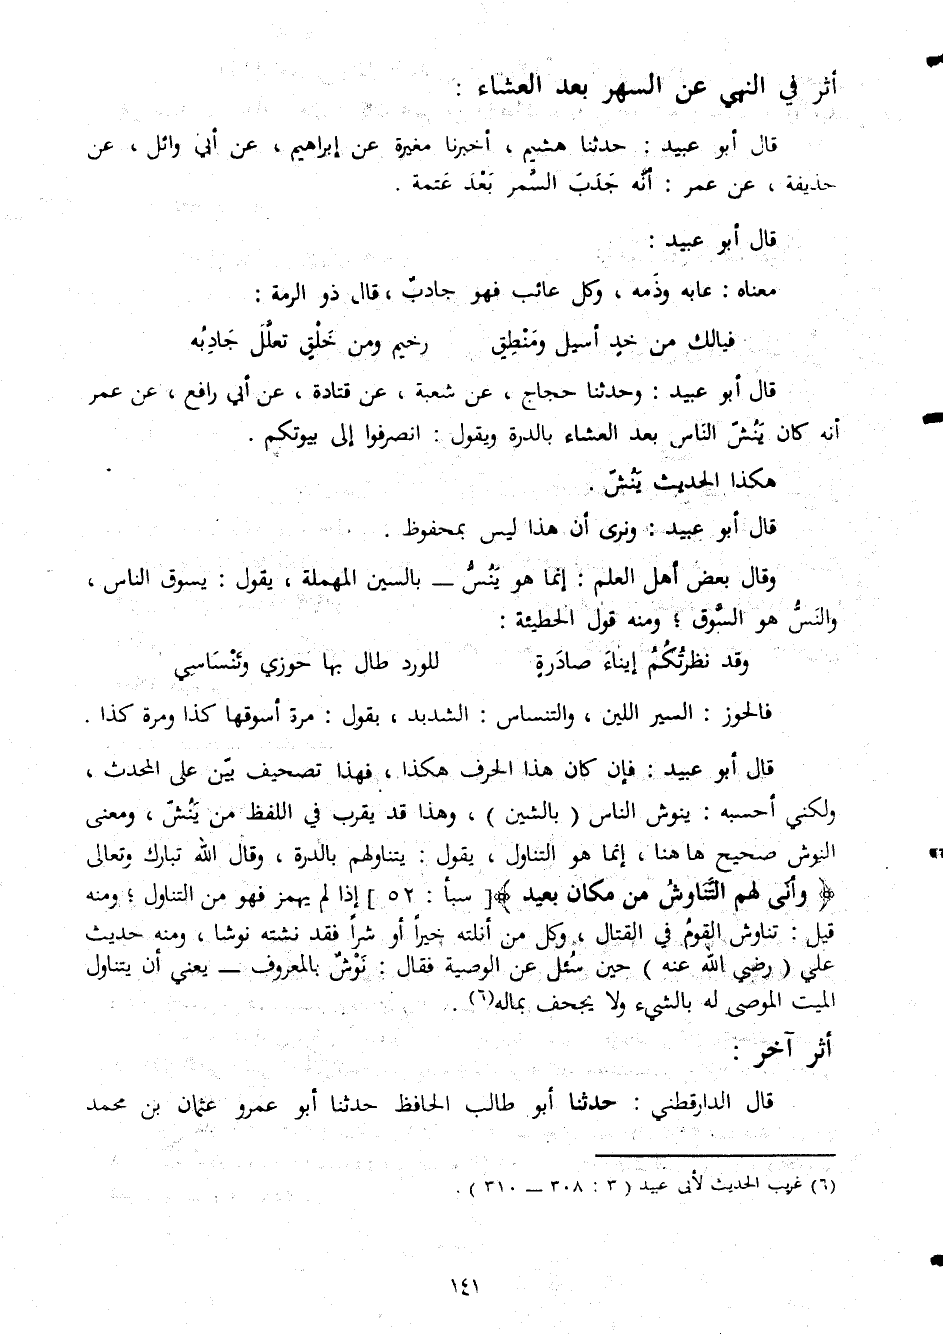 أثر في النهي عن السهر بعد العشاء :
قال أبو عبيد : حدثنا هشيم ، أخبرنا مغيرة عن إبراهيم ، عن أبي وائل ، عن
حذيفة ، عن عمر : أنَّه جَدَبَ السُمر بَعْدَ عَتمة .
قال أبو عبيد :
معناه : عابه وذَمه ، وكل عائب فهو جادبٌ ، قال ذو الرمة :
فيالك من خدٍ أسيل ومَنْطِقٍ رخيم ومن خَلْقٍ تعلَّلَ جَادِبُه
قال أبو عبيد : وحدثنا حجاج ، عن شعبة ، عن قتادة ، عن أبي رافع ، عن عمر
أنه كان يَنُشّ النَاس بعد العشاء بالدرة ويقول : انصرفوا إلى بيوتكم .
هكذا الحديث يَنُشّ .
قال أبو عبيد : ونرى أن هذا ليس بمحفوظ .
وقال بعض أهل العلم : إنما هو يَنُسُّ ــ بالسين المهملة ، يقول : يسوق الناس ،
والنَسُّ هو السَّوق ؛ ومنه قول الحطيئة :
وقد نظرتُكُمُ إيناءَ صادَرةٍ للورد طال بها حوزي وتَنْسَاسِي
فالحوز : السير اللين ، والتنساس : الشديد ، يقول : مرة أسوقها كذا ومرة كذا .
قال أبو عبيد : فإن كان هذا الحرف هكذا ، فهذا تصحيف بيّن على المحدث ،
ولكني أحسبه : ينوش الناس ( بالشين ) ، وهذا قد يقرب في اللفظ من يَنُشّ ، ومعنى
النوش صحيح ها هنا ، إنما هو التناول ، يقول : يتناولهم بالدرة ، وقال الله تبارك وتعالى
﴿ وأنّى لهم التَّناوشُ من مكان بعيد ﴾[ سبأ : ٥٢ ] إذا لم يهمز فهو من التناول ؛ ومنه
قيل : تناوش القومُ في القتال ، وكل من أنلته خيراً أو شراً فقد نشته نوشا ، ومنه حديث
علي ( رضي الله عنه ) حين سُئل عن الوصية فقال : نَوْشٌ بالمعروف ــ يعني أن يتناول
الميت الموصى له بالشيء ولا يجحف بماله(٦) .
أثر آخر :
قال الدارقطني : حدثنا أبو طالب الحافظ حدثنا أبو عمرو عثمان بن محمد
(٦) غريب الحديث لأبي عبيد ( ٣ : ٣٠٨ ــ ٣١٠ ) .
١٤١